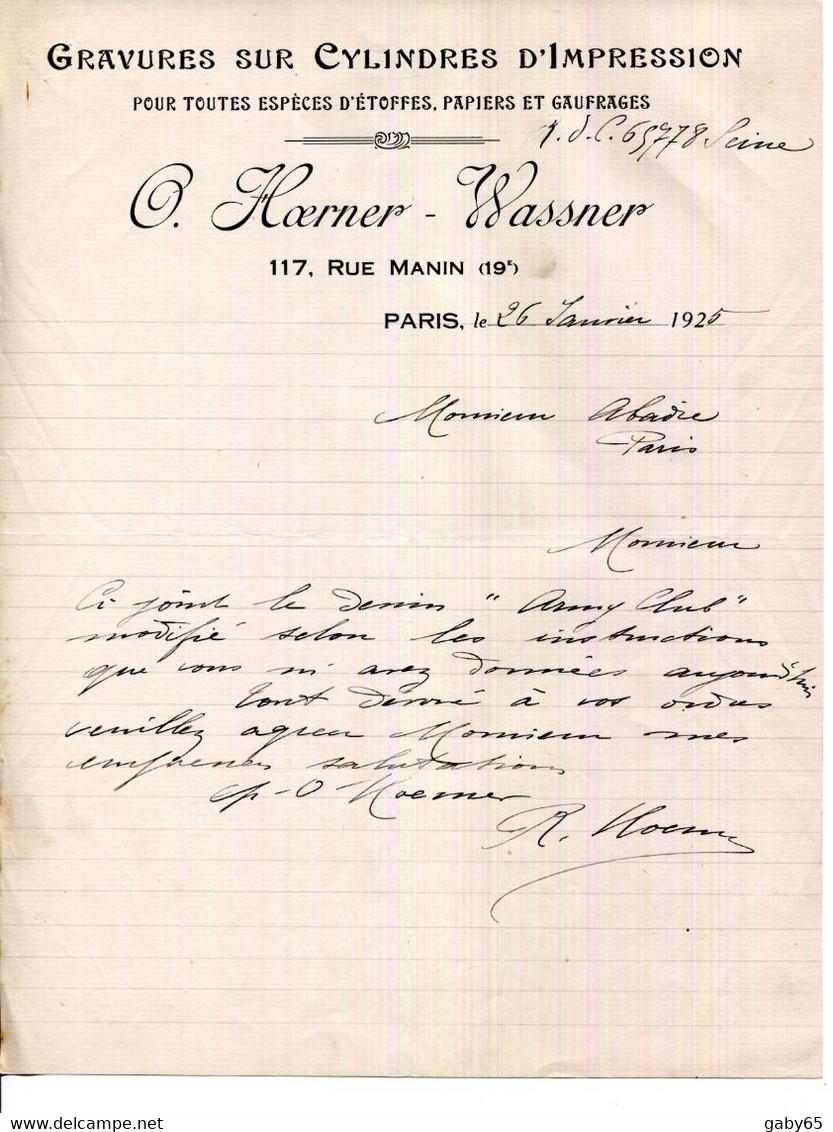 GRAVURES SUR CYLINDRES D'IMPRESSION
POUR TOUTES ESPÈCES D'ÉTOFFES, PAPIERS ET GAUFRAGES
r.d.C. 65778 Seine
O. Hœrner - Wassner
117, RUE MANIN (19E)
PARIS, le 26 Janvier 1925
Monsieur Abadie
Paris
Monsieur
Ci joint le dessin "Army Club"
modifié selon les instructions
que vous m'avez données aujourd'hui
Tout dévoué à vos ordres
veuillez agréer Monsieur mes
empressées salutations
p-O Hoerner
R. Hoerner
delcampe.net
gaby65